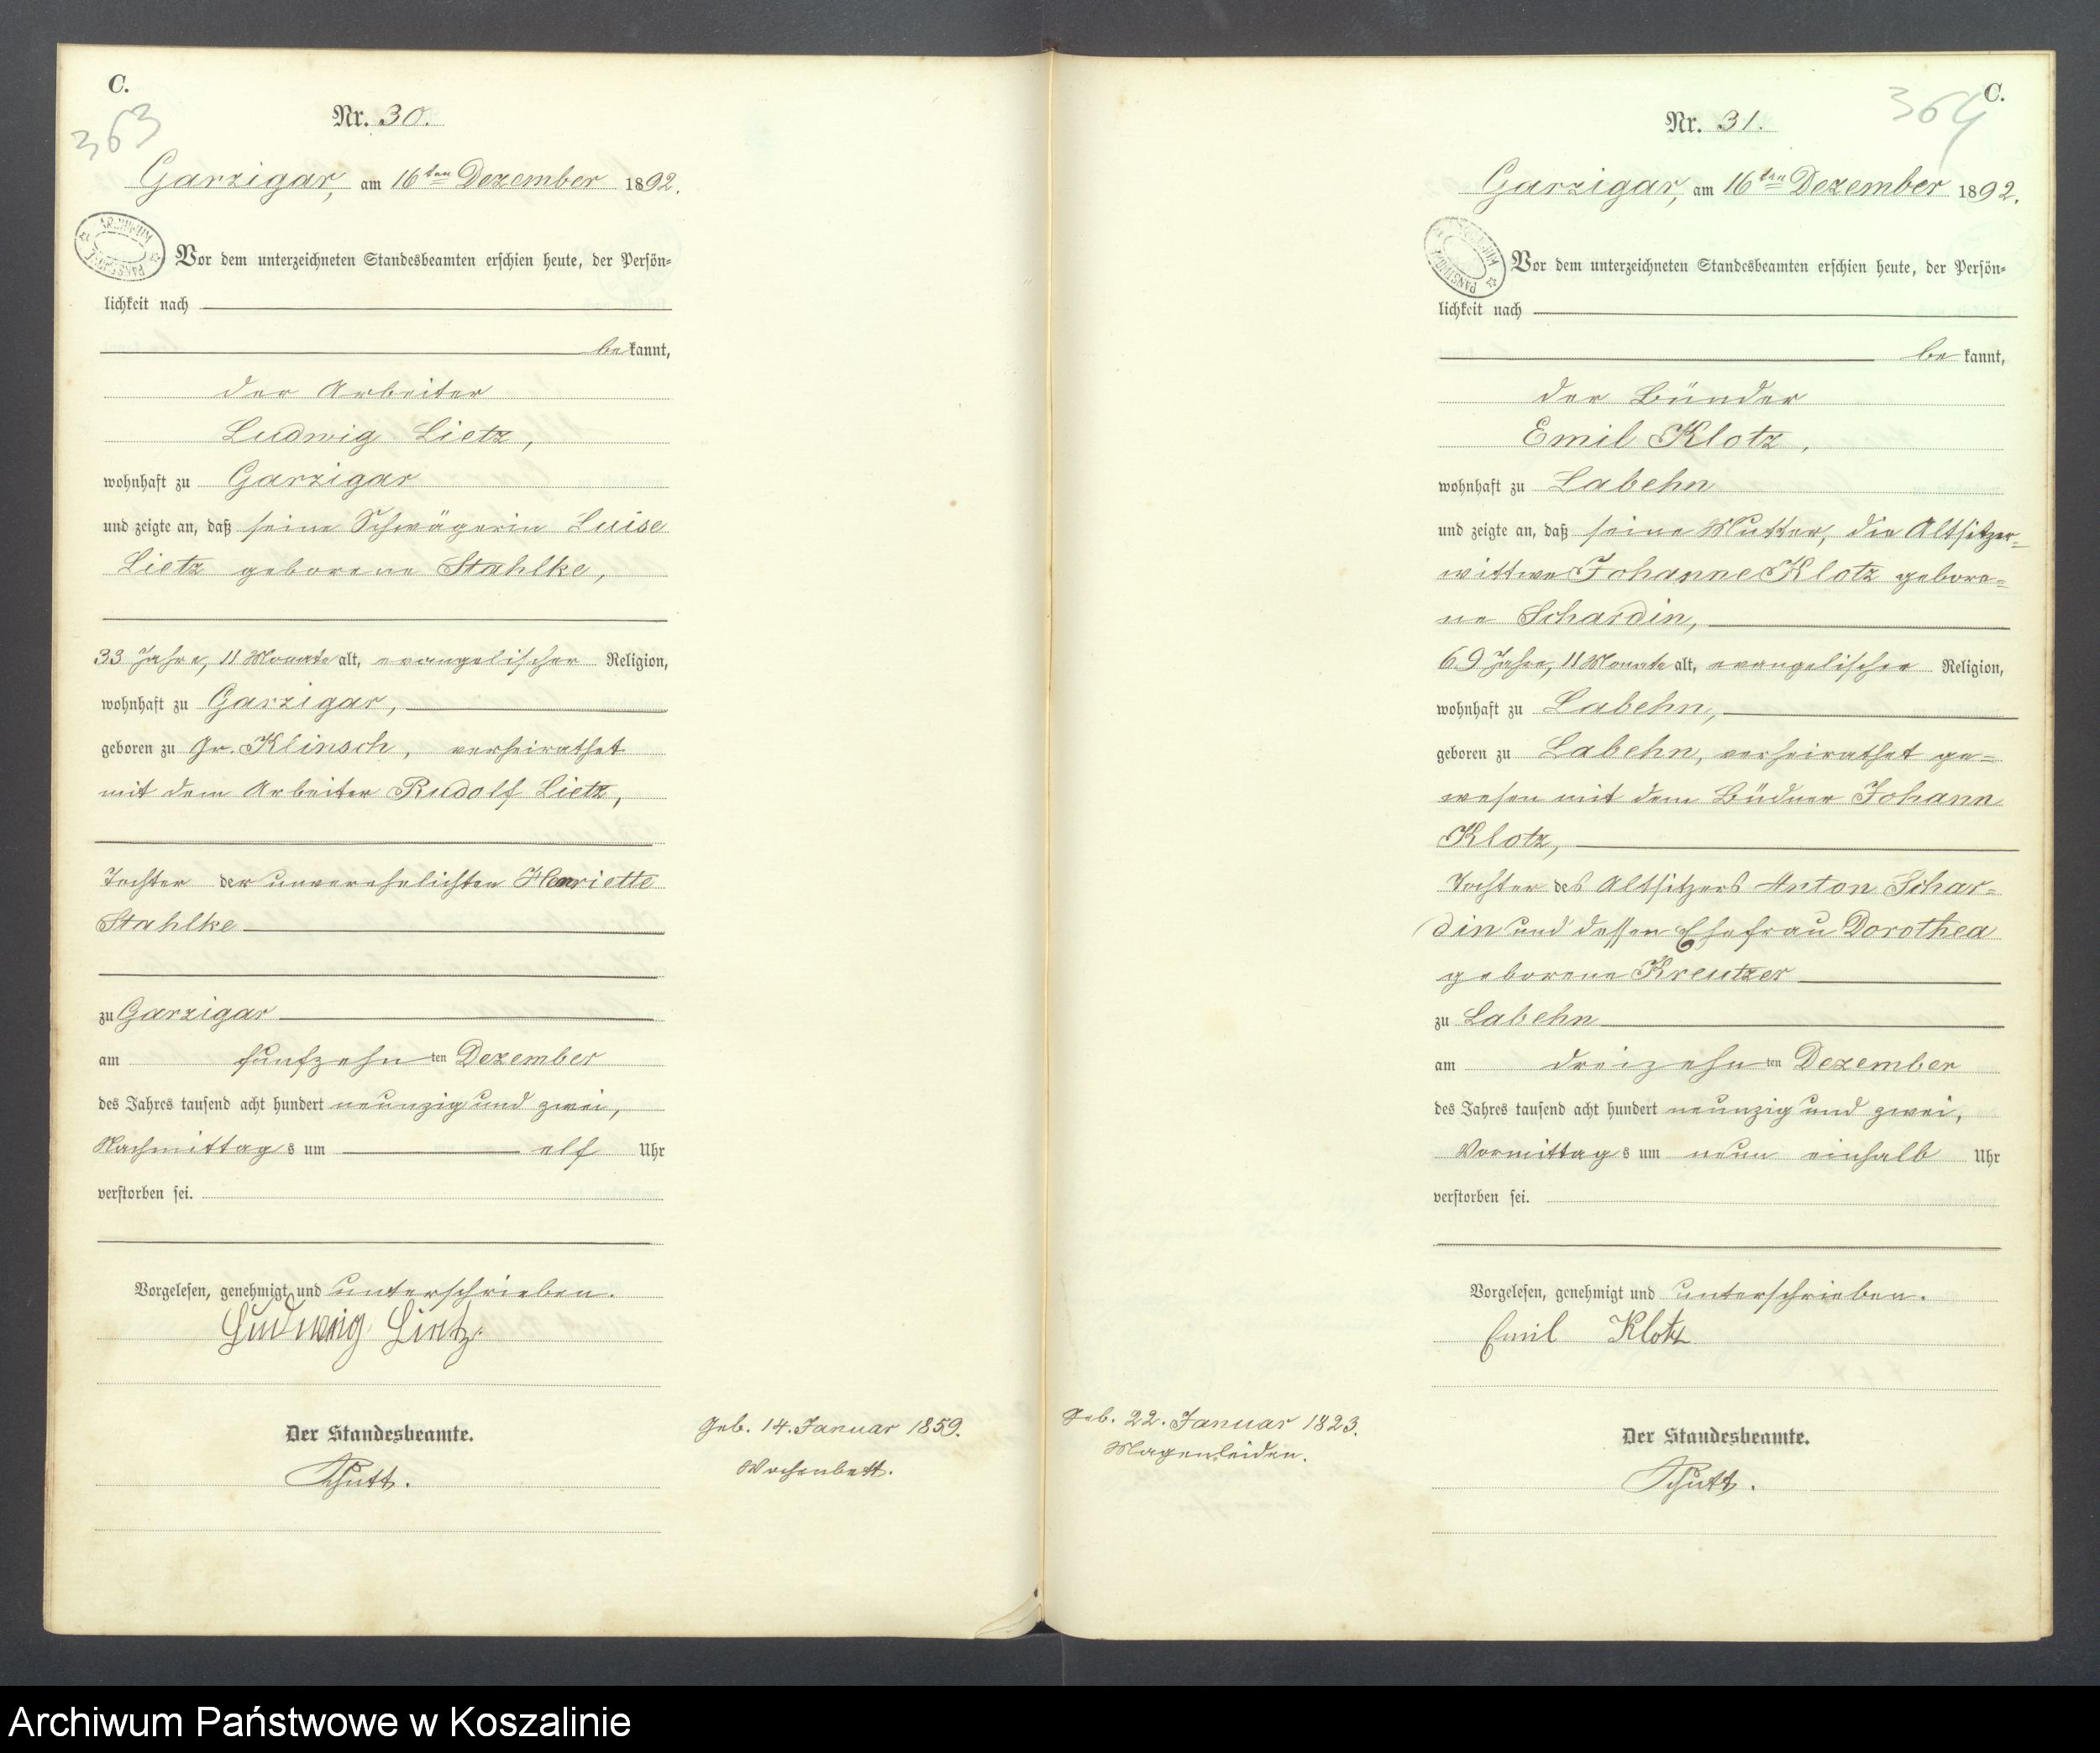 C.
363
Nr. 30.
Garzigar, am 16ten Dezember 1892.
ARCHIWUM PAŃSTWOWE
Vor dem unterzeichneten Standesbeamten erschien heute, der Persön=
lichkeit nach
be kannt,
der Arbeiter
Ludwig Lietz,
wohnhaft zu Garzigar
und zeigte an, daß seine Schwägerin Luise
Lietz geborene Stahlke,
33 Jahre, 11 Monate alt, evangelischer Religion,
wohnhaft zu Garzigar,
geboren zu Gr. Klinsch, verheirathet
mit dem Arbeiter Rudolf Lietz,
Tochter der unverehelichten Henriette
Stahlke
zu Garzigar
am fünfzehn ten Dezember
des Jahres tausend acht hundert neunzig und zwei,
Nachmittag s um elf Uhr
verstorben sei.
Vorgelesen, genehmigt und unterschrieben.
Ludwig Lietz.
Der Standesbeamte.
Geb. 14. Januar 1859.
Wochenbett.
C.
364
Nr. 31.
Garzigar, am 16ten Dezember 1892.
ARCHIWUM PAŃSTWOWE
Vor dem unterzeichneten Standesbeamten erschien heute, der Persön=
lichkeit nach
be kannt,
der Bünder
Emil Klotz,
wohnhaft zu Labehn
und zeigte an, daß seine Mutter, die Altsitzer=
wittwe Johanne Klotz gebore=
ne Schardin,
69 Jahre, 11 Monate alt, evangelischer Religion,
wohnhaft zu Labehn,
geboren zu Labehn, verheirathet ge=
wesen mit dem Büdner Johann
Klotz,
Tochter des Altsitzers Anton Schar=
din und dessen Ehefrau Dorothea
geborene Kreutzer
zu Labehn
am dreizehn ten Dezember
des Jahres tausend acht hundert neunzig und zwei,
Vormittag s um neun einhalb Uhr
verstorben sei.
Vorgelesen, genehmigt und unterschrieben.
Emil Klotz
Der Standesbeamte.
Geb. 22. Januar 1823.
Magenleiden.
Archiwum Państwowe w Koszalinie